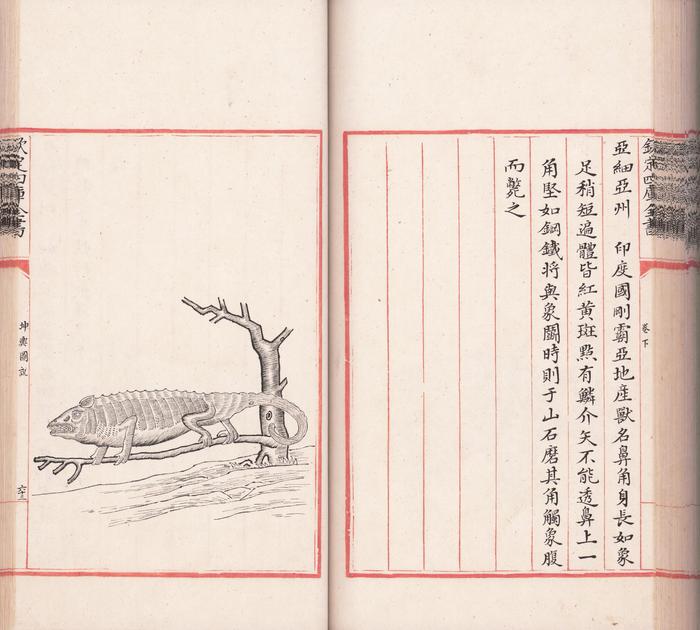 欽定四庫全書
卷下
亞細亞州　印度國剛霸亞地產獸名鼻角身長如象
足稍短遍體皆紅黃斑點有鱗介矢不能透鼻上一
角堅如鋼鐵將與象鬭時則于山石磨其角觸象腹
而斃之
欽定四庫全書
坤輿圖說
六十三